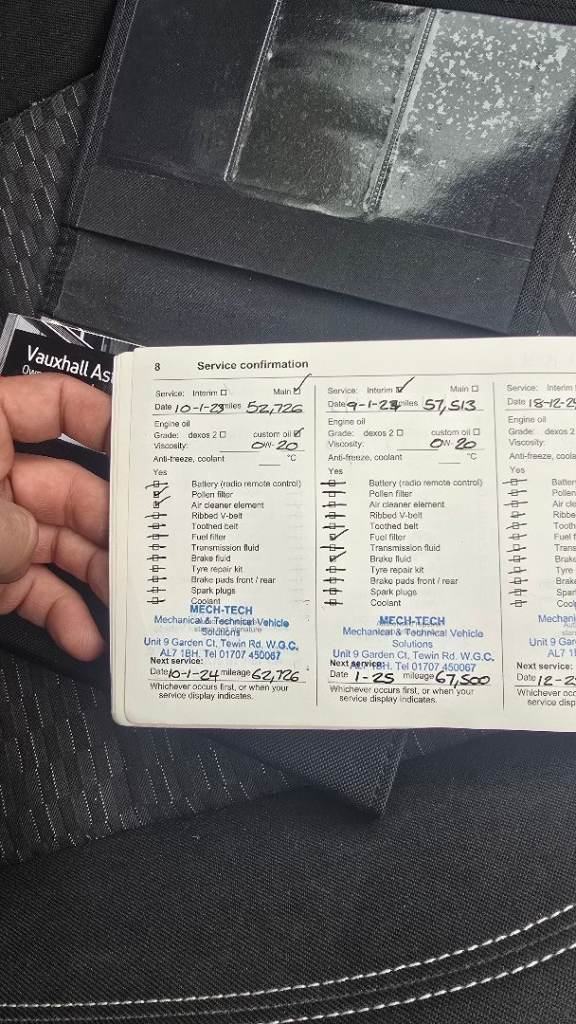 Vauxhall As
8 Service confirmation
Service: Interim Main
Date 10-1-23 miles 52,726
Engine oil
Grade: dexos 2 custom oil
Viscosity: 0W-20
Anti-freeze, coolant °C
Yes
Battery (radio remote control)
Pollen filter
Air cleaner element
Ribbed V-belt
Toothed belt
Fuel filter
Transmission fluid
Brake fluid
Tyre repair kit
Brake pads front / rear
Spark plugs
Coolant
MECH-TECH
Mechanical & Technical Vehicle
Solutions
Unit 9 Garden Ct, Tewin Rd. W.G.C.
AL7 1BH. Tel 01707 450067
Next service:
Date 10-1-24 mileage 62,726
Whichever occurs first, or when your
service display indicates.
Service: Interim Main
Date 9-1-24 miles 57,513
Engine oil
Grade: dexos 2 custom oil
Viscosity: 0W-20
Anti-freeze, coolant °C
Yes
Battery (radio remote control)
Pollen filter
Air cleaner element
Ribbed V-belt
Toothed belt
Fuel filter
Transmission fluid
Brake fluid
Tyre repair kit
Brake pads front / rear
Spark plugs
Coolant
MECH-TECH
Mechanical & Technical Vehicle
Solutions
Unit 9 Garden Ct, Tewin Rd. W.G.C.
AL7 1BH. Tel 01707 450067
Next service:
Date 1-25 mileage 67,500
Whichever occurs first, or when your
service display indicates.
Service: Interim
Date 18-12-2
Engine oil
Grade: dexos 2
Viscosity:
Anti-freeze, coola
Yes
Batter
Pollen
Air cle
Ribbe
Tooth
Fuel f
Trans
Brake
Tyre
Brake
Spark
Cool
Mechani
Unit 9 Gar
AL7 1
Next service:
Date 12-2
Whichever occ
service disp